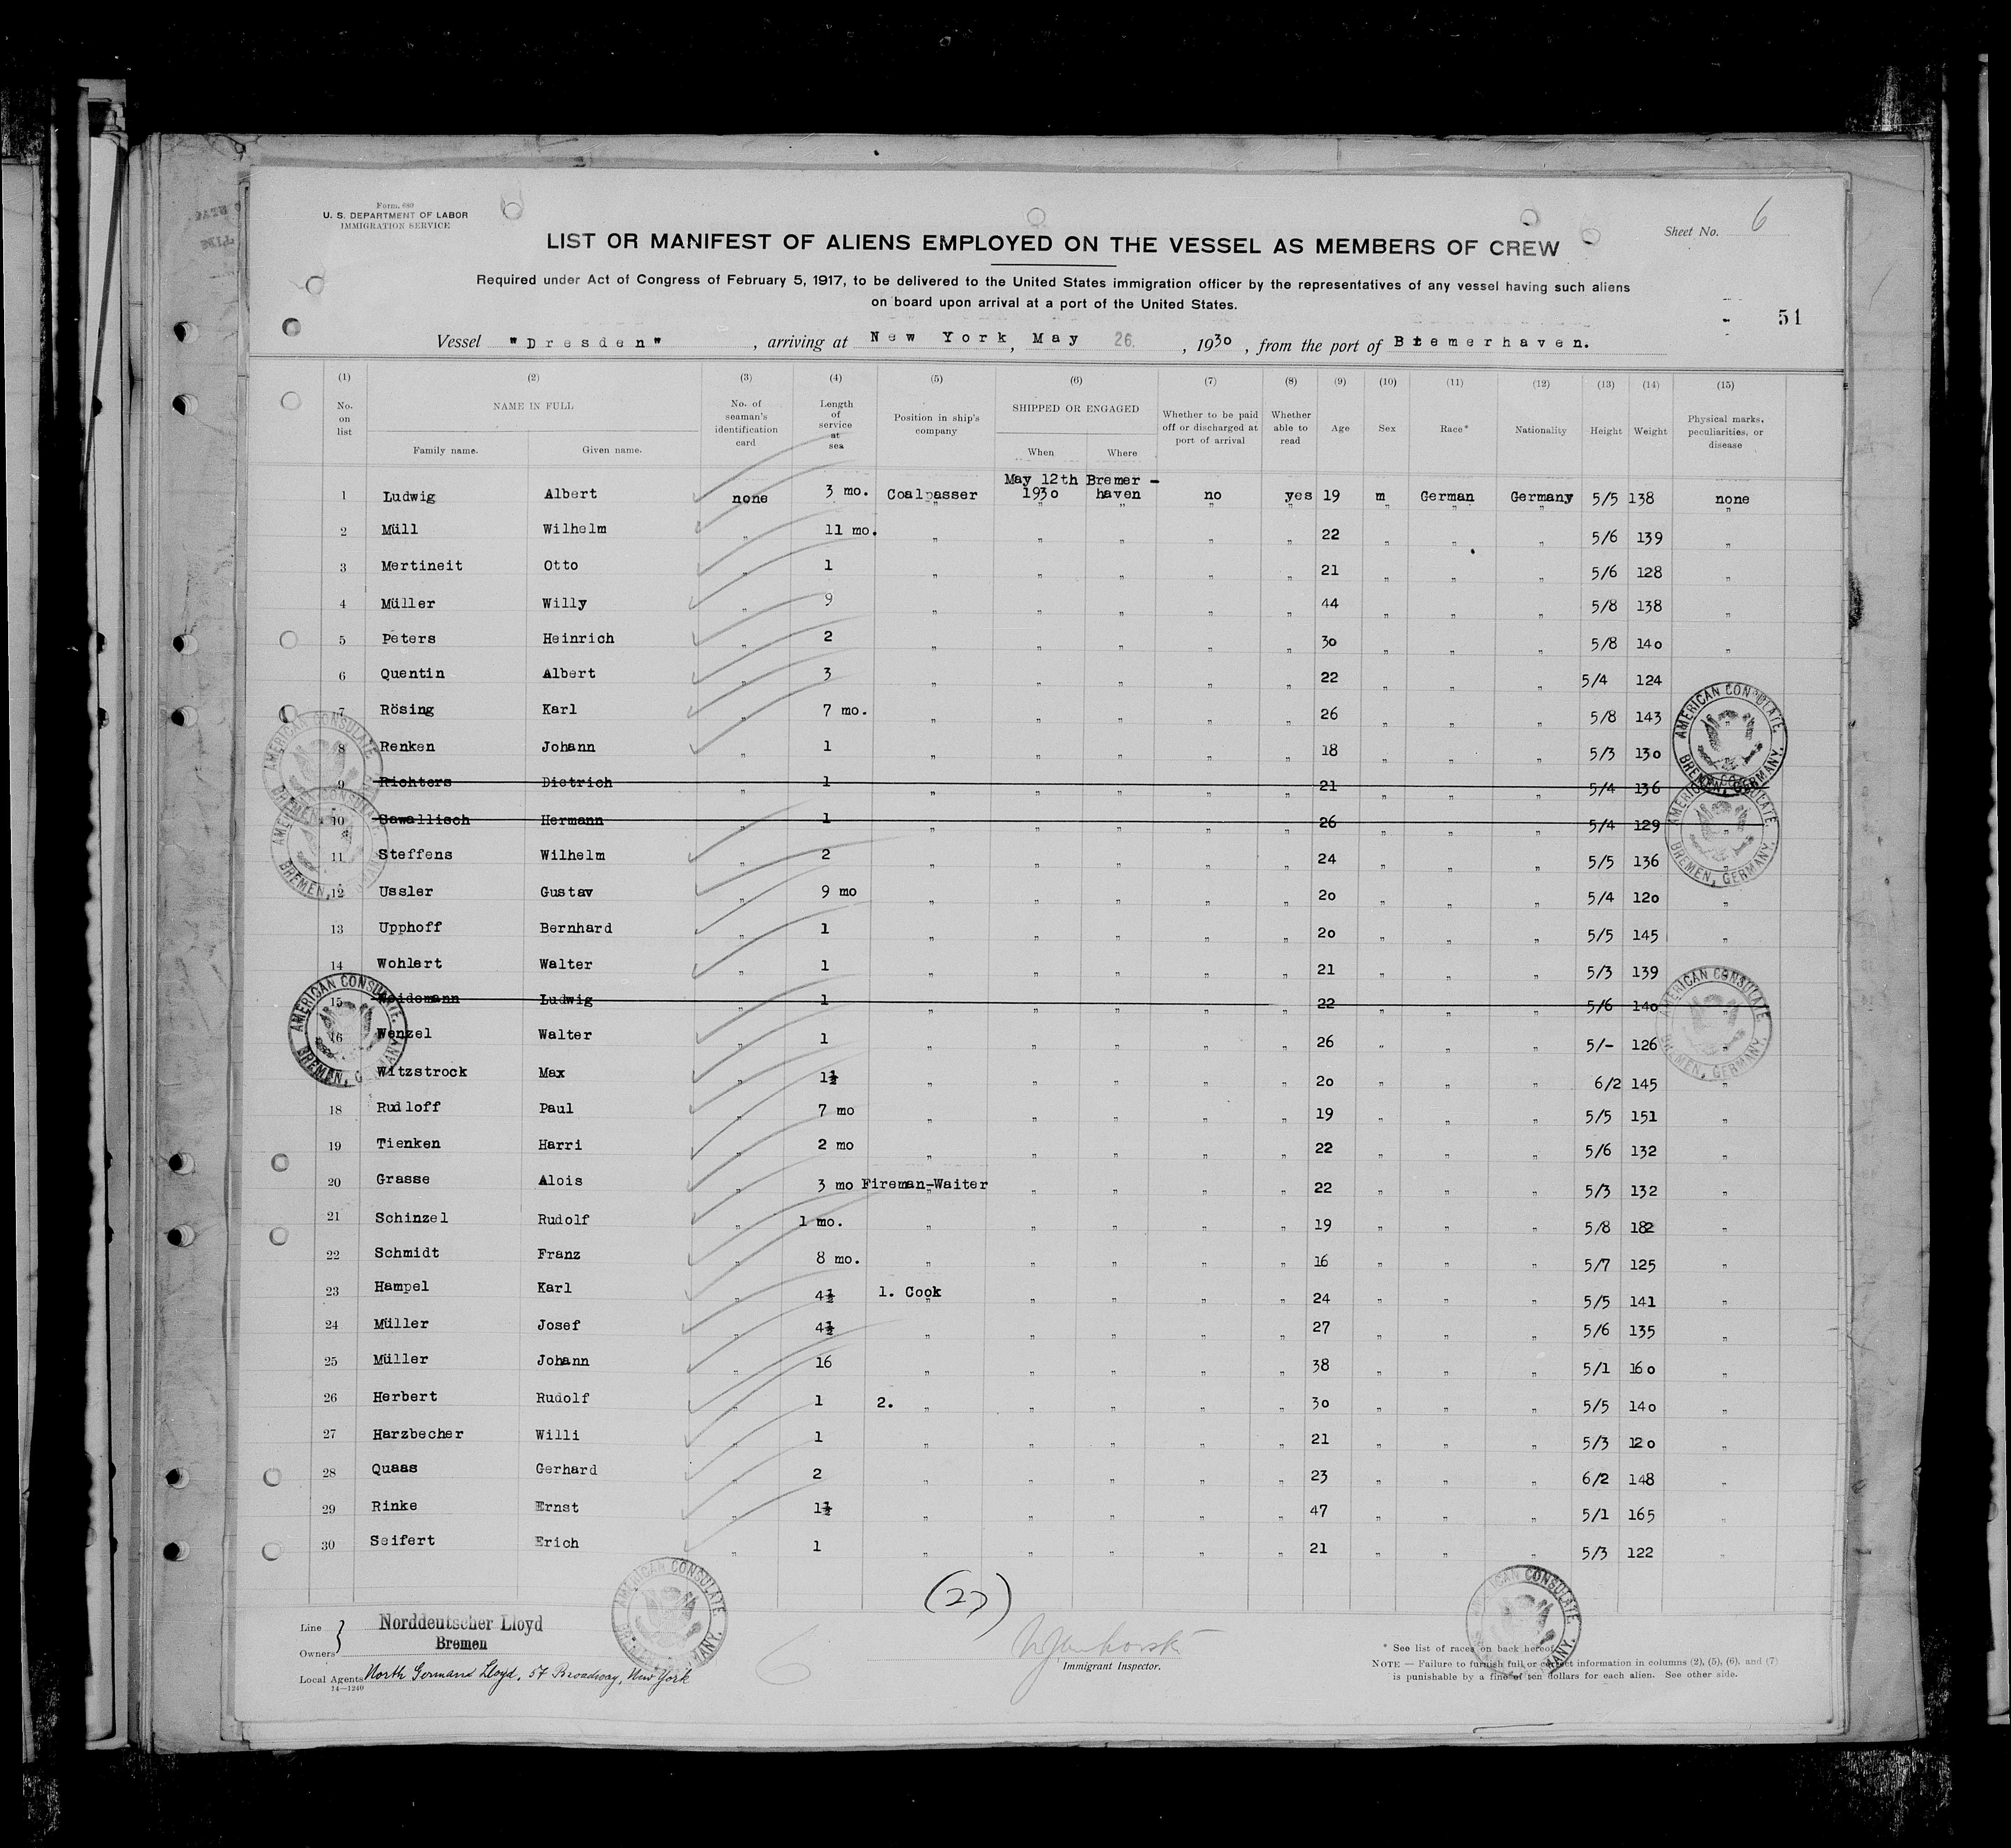 Form 680
U. S. DEPARTMENT OF LABOR
IMMIGRATION SERVICE
Sheet No. 6
LIST OR MANIFEST OF ALIENS EMPLOYED ON THE VESSEL AS MEMBERS OF CREW
Required under Act of Congress of February 5, 1917, to be delivered to the United States immigration officer by the representatives of any vessel having such aliens
on board upon arrival at a port of the United States.
51
Vessel "Dresden", arriving at New York, May 26, 1930, from the port of Bremerhaven.
(1) (2) (3) (4) (5) (6) (7) (8) (9) (10) (11) (12) (13) (14) (15)
No. on list
NAME IN FULL
Family name. Given name.
No. of seaman's identification card
Length of service at sea
Position in ship's company
SHIPPED OR ENGAGED
When Where
Whether to be paid off or discharged at port of arrival
Whether able to read
Age Sex Race* Nationality Height Weight
Physical marks, peculiarities, or disease
1 Ludwig Albert none 3 mo. Coalpasser May 12th 1930 Bremer-haven no yes 19 m German Germany 5/5 138 none
2 Müll Wilhelm " 11 mo. " " " " " 22 " " " 5/6 139 "
3 Mertineit Otto " 1 " " " " " 21 " " " 5/6 128 "
4 Müller Willy " 9 " " " " " 44 " " " 5/8 138 "
5 Peters Heinrich " 2 " " " " " 30 " " " 5/8 140 "
6 Quentin Albert " 3 " " " " " 22 " " " 5/4 124 "
7 Rösing Karl " 7 mo. " " " " " 26 " " " 5/8 143 "
8 Renken Johann " 1 " " " " " 18 " " " 5/3 130 "
9 Richters Dietrich 1 " " " " " 21 " " " 5/4 136 "
10 Sawallisch Hermann 1 " " " " " 26 " " " 5/4 129 "
11 Steffens Wilhelm " 2 " " " " " 24 " " " 5/5 136 "
12 Ussler Gustav " 9 mo " " " " " 20 " " " 5/4 120 "
13 Upphoff Bernhard " 1 " " " " " 20 " " " 5/5 145 "
14 Wohlert Walter " 1 " " " " " 21 " " " 5/3 139 "
15 Weidemann Ludwig 1 " " " " " 22 " " " 5/6 140 "
16 Wenzel Walter " 1 " " " " " 26 " " " 5/- 126 "
Witzstrock Max " 1½ " " " " " 20 " " " 6/2 145 "
18 Rudloff Paul " 7 mo " " " " " 19 " " " 5/5 151 "
19 Tienken Harri " 2 mo " " " " " 22 " " " 5/6 132 "
20 Grasse Alois " 3 mo Fireman-Waiter " " " " 22 " " " 5/3 132 "
21 Schinzel Rudolf " 1 mo. " " " " " 19 " " " 5/8 182 "
22 Schmidt Franz " 8 mo. " " " " " 16 " " " 5/7 125 "
23 Hampel Karl " 4½ 1. Cook " " " " 24 " " " 5/5 141 "
24 Müller Josef " 4½ " " " " " 27 " " " 5/6 135 "
25 Müller Johann " 16 " " " " " 38 " " " 5/1 160 "
26 Herbert Rudolf " 1 2. " " " " " 30 " " " 5/5 140 "
27 Harzbecher Willi " 1 " " " " " 21 " " " 5/3 120 "
28 Quaas Gerhard " 2 " " " " " 23 " " " 6/2 148 "
29 Rinke Ernst " 1½ " " " " " 47 " " " 5/1 165 "
30 Seifert Erich " 1 " " " " " 21 " " " 5/3 122 "
AMERICAN CONSULATE
BREMEN, GERMANY.
AMERICAN CONSULATE
BREMEN, GERMANY.
AMERICAN CONSULATE.
BREMEN, GERMANY.
AMERICAN CONSULATE
BREMEN, GERMANY.
AMERICAN CONSULATE.
BREMEN, G
AMERICAN CONSULATE.
BREMEN, GERMANY.
AMERICAN CONSULATE.
AMERICAN CONSULATE.
(27)
Line
Owners
Norddeutscher Lloyd
Bremen
Local Agents North German Lloyd, 57 Broadway, New York
14—1240
6
Immigrant Inspector.
* See list of races on back hereof.
NOTE — Failure to furnish full or correct information in columns (2), (5), (6), and (7)
is punishable by a fine of ten dollars for each alien. See other side.